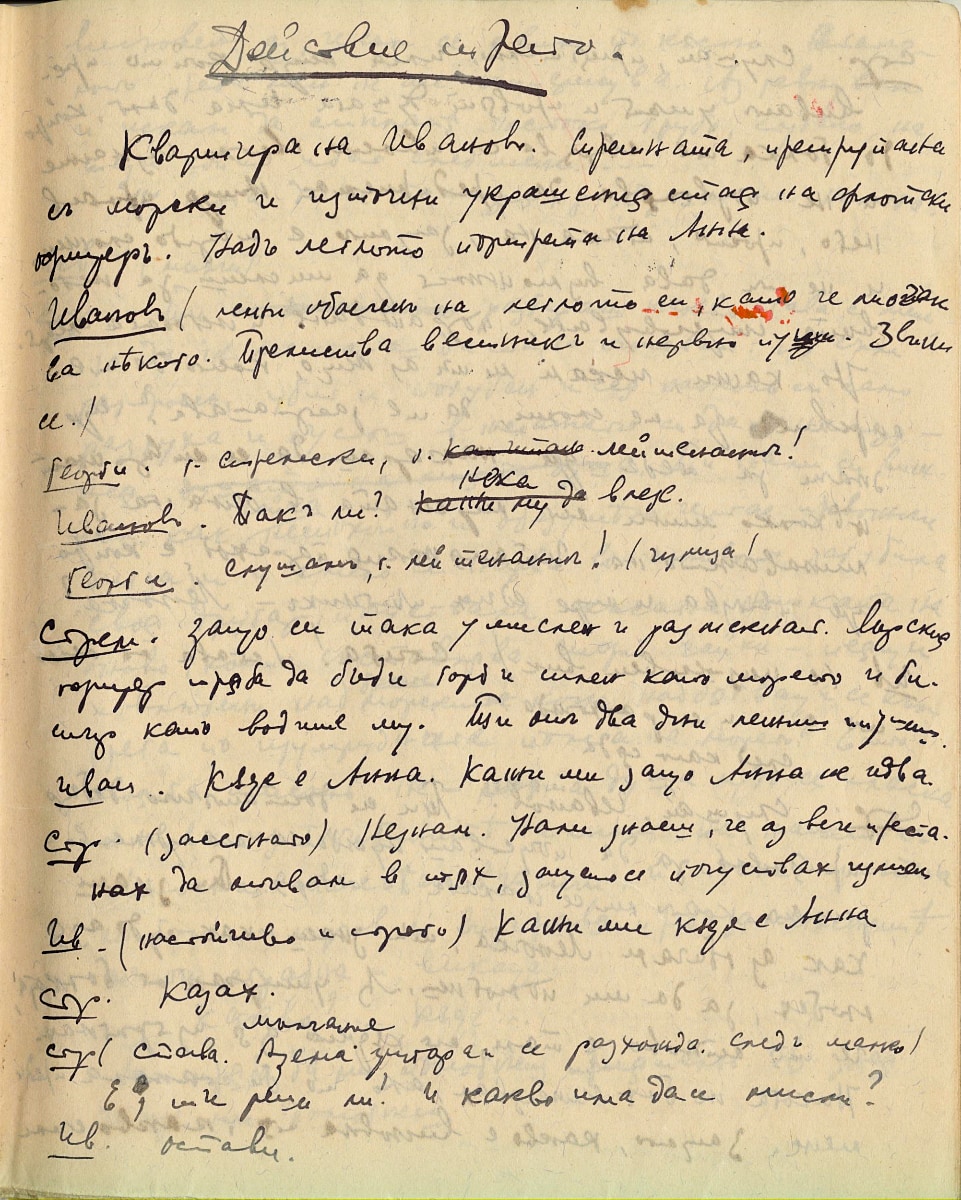 Действие трето.
Квартира на Ивановъ. Стаята, претрупана
съ морски и източни украшения стая на флотски
офицеръ. Надъ леглото портрета на Анна.
Ивановъ (лежи облечен на леглото си, като че ли очак
ва нѣкого. Прелиства вестникъ и нервно пуши. Звъни
се./
Георги. г. Стрелески, г. капитанъ лейтенантъ!
Ивановъ. Такъ ли? Кажи му Нека да влезе.
Георги. слушамъ, г. лейтенантъ! /
Стрем. Защо си така умислен и размекнат. Морския
офицер трябва да бъде горд и силен като морето и би-
стър като водите му. Ти от два дни лежиш
Иван. Къде е Анна. Кажи ми защо Анна не идва.
Стр. (засегнато) Незнам. Нали знаеш, че аз вече преста-
нах да отивам в тях, защото се почуствах
Ив - (настойчиво и строго) Кажи ми къде е Анна
Стр. Казах.
мълчание
Стр ( Става. Взема цигара и се разхожда. следъ малко)
Е, ти реши ли! И какво има да се мисли?
Ив. остави.